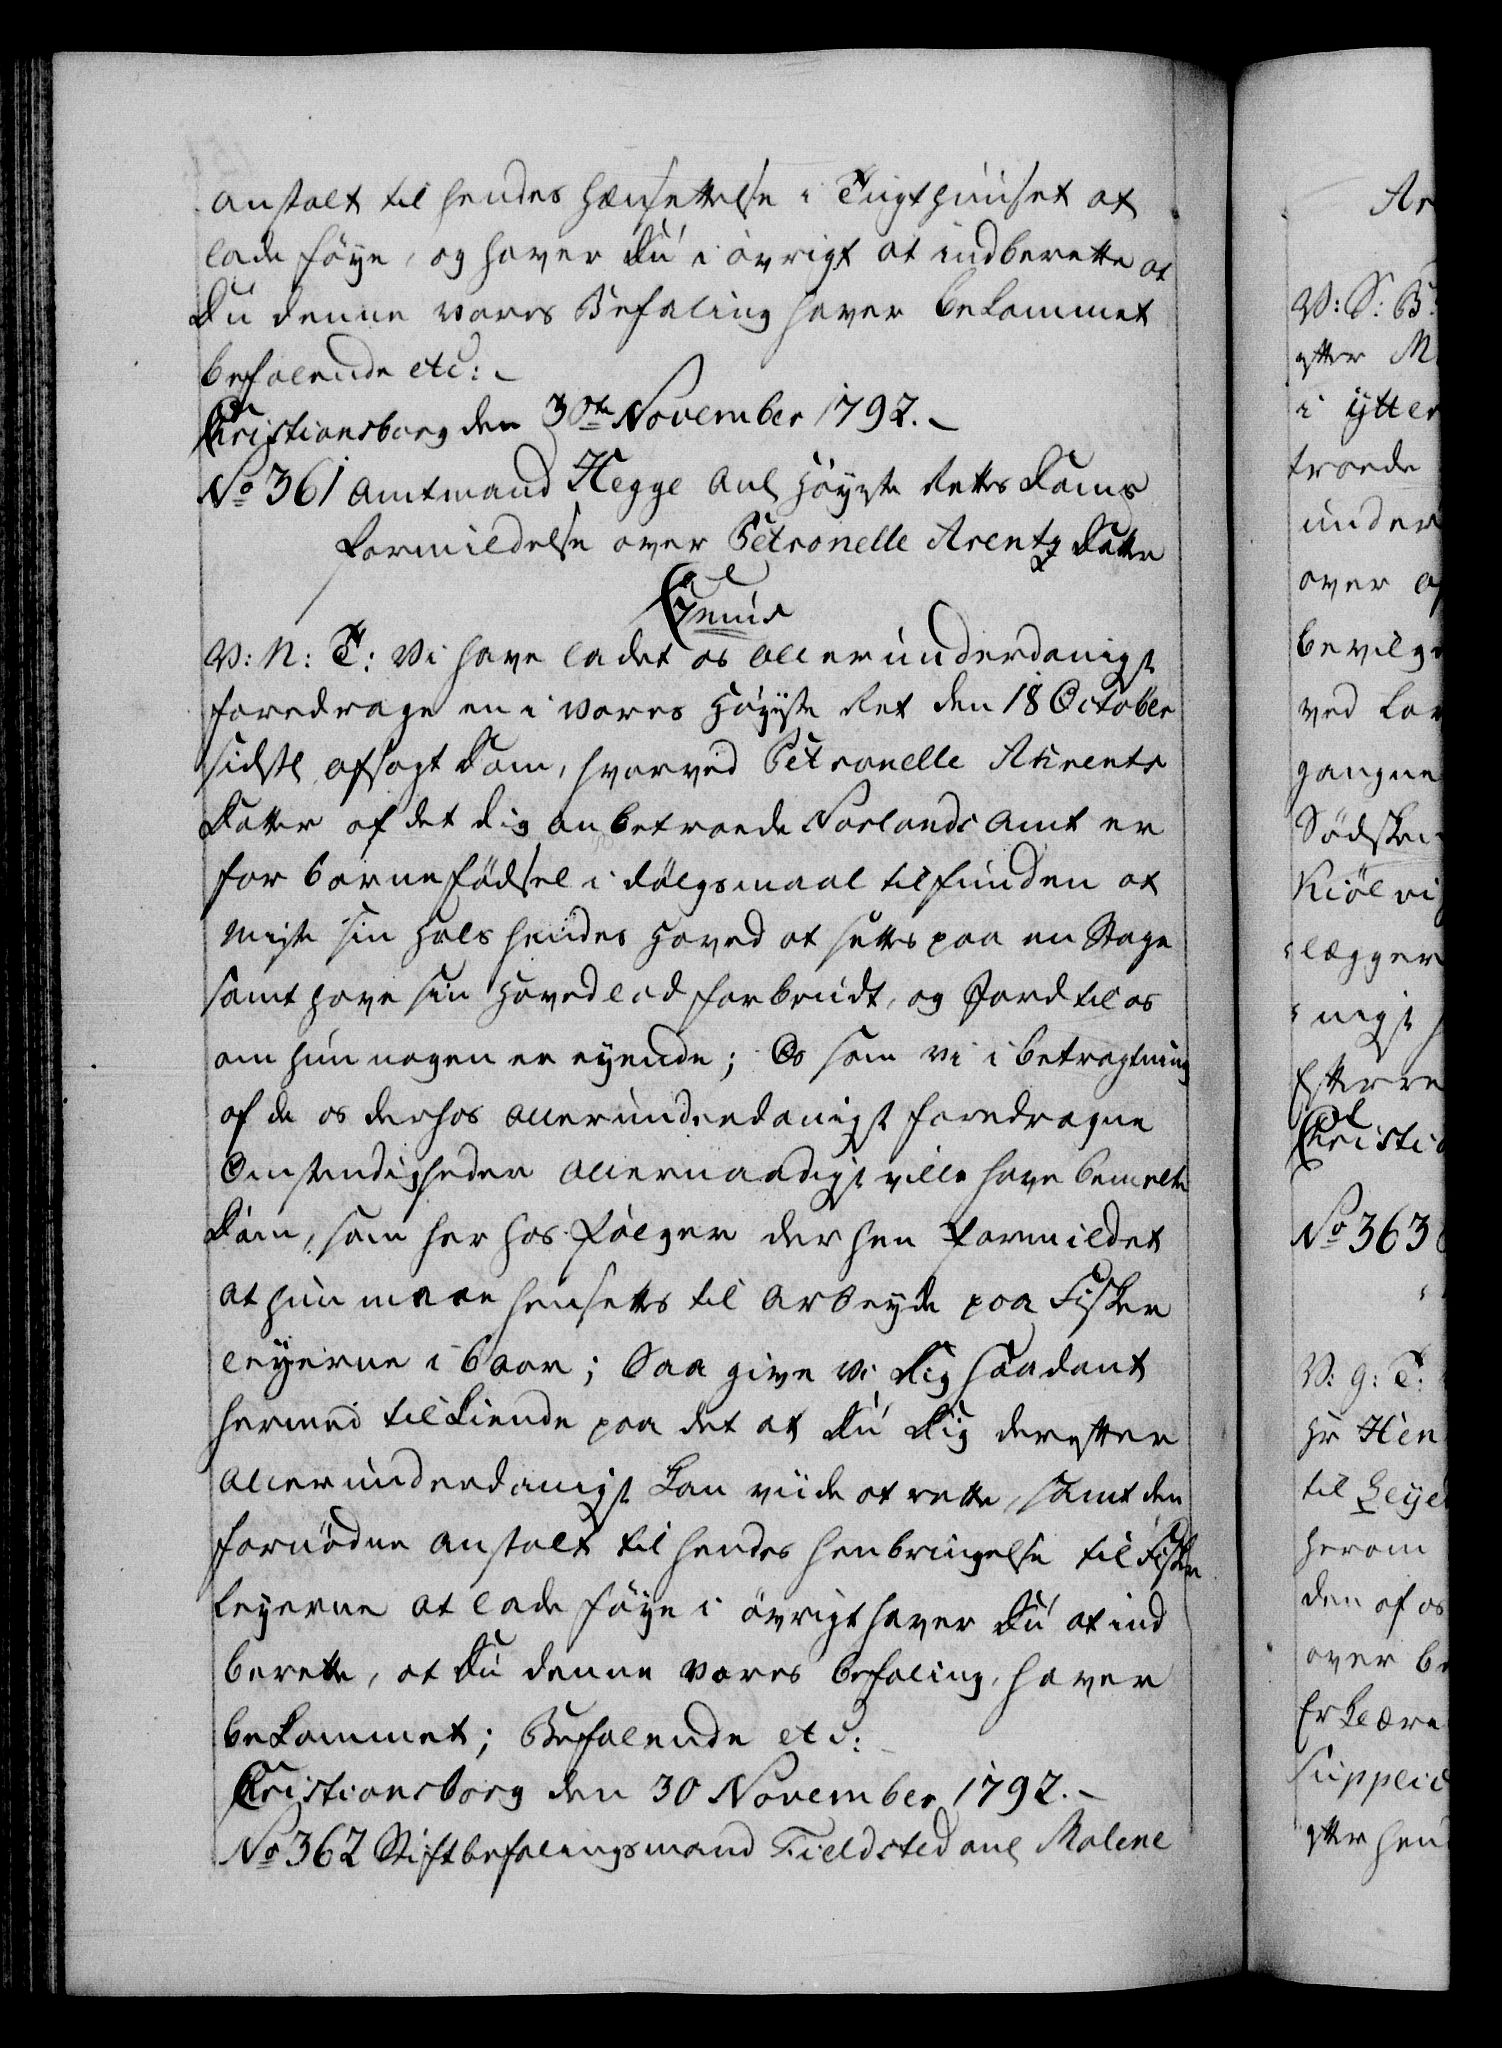 anstalt til hendes hensettelse i Tugthuuset at
lade føye, og haver Du i øvrigt at indberette at
Du denne vores Befaling haver bekommet
befalende etc:
Christiansborg den 30te November 1792.
No 361 Amtmand Hegge anl Høyeste Rettes Doms
Formildelse over Petronelle Arentz Datter
V: N: T: Vi have ladet os allerunderdanigst
foredrage en i vores Høyeste Ret den 18 October
sidstl afsagt Dom, hvorved Petronelle Ahrents
Datter af det dig anbetroede Norlands Amt er
for barnefødsel i dølgsmaal tilfunden at
miste sin Hals hendes Hoved at settes paa en Stage
samt have sin Hovedlod forbrudt, og Jord til os
om hun nogen er eyende; Da som vi i betragtning
af de os derhos allerunderdanigst foredragne
Omstendigheder allernaadigst ville have bemelte
Dom, som her hos følger der hen formildet
at hun maae hensettes til Arbeyde paa Fisker
leyerne i 6 Aar; Saa give vi Dig saadant
hermed tilkiende paa det at Du Dig derefter
allerunderdanigst kan viide at rette, samt den
fornødne anstalt til hendes henbringelse til Fisker
leyerne at lade føye i øvrigt haver Du at ind
berette, at Du denne vores befaling, haver
bekommet; Befalende etc:
Christiansborg den 30 November 1792.
No 362 Stiftbefalingsmand Fieldsted anl Malene
Ar
V: S: B:
efter M
i ytter
troede
under
over
bevilge
ved
gangne
Sødsken
Kiøl
lægger
nigst
Efterre
Christia
No 363
V: G: T:
Hr Hen
til Leye
herom
den af os
over be
Erklære
Supplic
efter hen